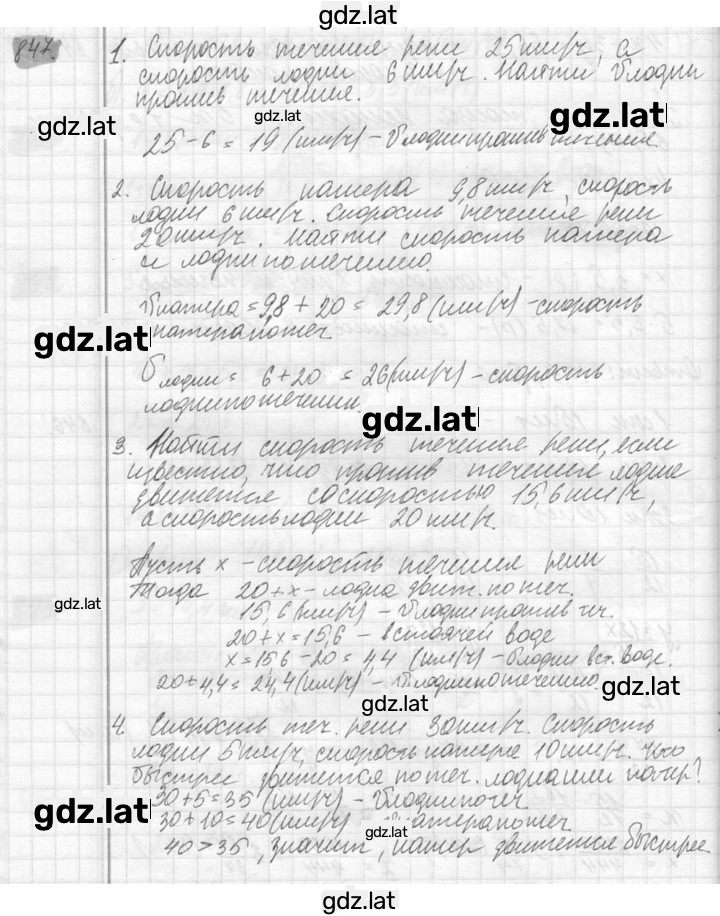 gdz.lat
847.
1. Скорость течения реки 25 км/ч, а
скорость лодки 6 км/ч. Найти υ лодки
против течения.
gdz.lat
gdz.lat
gdz.lat
25 - 6 = 19 (км/ч) - υ лодки против течения
2. Скорость катера 9,8 км/ч, скорость
лодки 6 км/ч. Скорость течения реки
20 км/ч. Найти скорость катера
и лодки по течению.
υ катера = 9,8 + 20 = 29,8 (км/ч) - скорость
катера по теч
gdz.lat
υ лодки = 6 + 20 = 26 (км/ч) - скорость
лодки по течении.
gdz.lat
3. Найти скорость течения реки, если
известно, что против течения лодка
движется со скоростью 15,6 км/ч,
а скорость лодки 20 км/ч.
Пусть x - скорость течения реки
Тогда 20 + x - лодка движ. по теч.
gdz.lat
15,6 (км/ч) - υ лодки против теч.
20 + x = 15,6 - в стоячей воде
x = 15,6 - 20 = 4,4 (км/ч) - υ лодки в ст. воде.
20 + 4,4 = 24,4 (км/ч) - υ лодки по течению.
gdz.lat
gdz.lat
4. Скорость теч. реки 30 км/ч. Скорость
лодки 5 км/ч, скорость катера 10 км/ч. Что
быстрее движется по теч. лодка или катер?
30 + 5 = 35 (км/ч) - υ лодки по теч
gdz.lat
30 + 10 = 40 (км/ч) - катера по теч
gdz.lat
40 > 35, значит, катер движется быстрее
gdz.lat